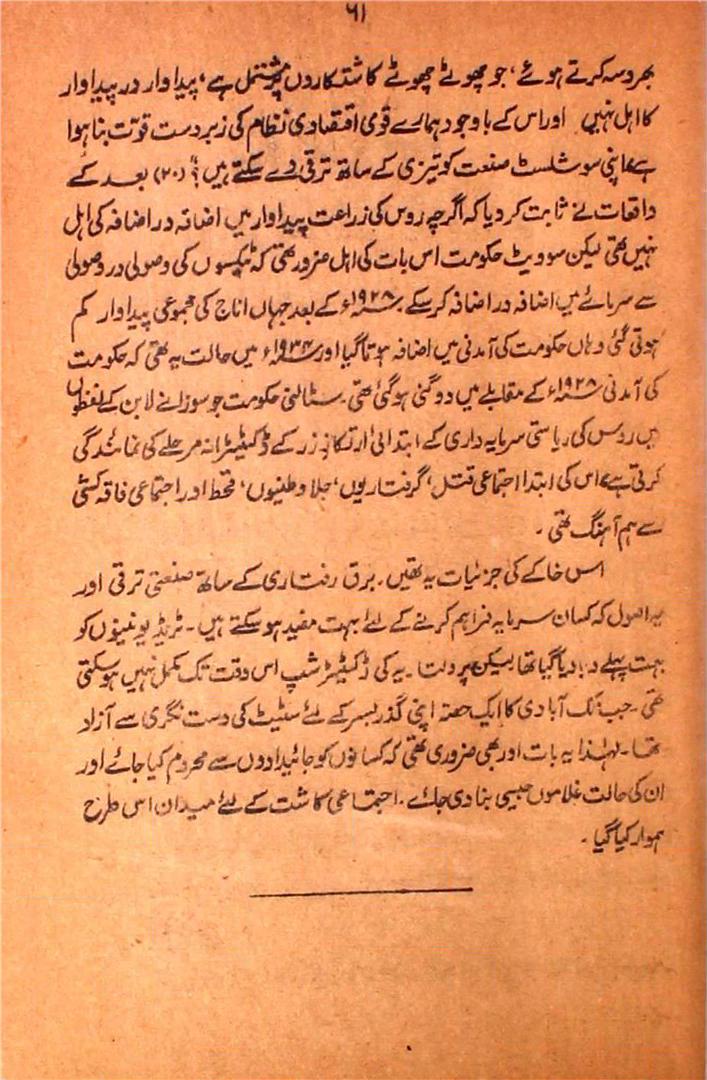 ۶۱
بھروسہ کرتے ہوئے، جو چھوٹے چھوٹے کاشتکاروں پر مشتمل ہے، پیداوار در پیداوار
کا اہل نہیں اور اس کے باوجود ہمارے قومی اقتصادی نظام کی زبردست قوت بنا ہوا
ہے، اپنی سوشلسٹ صنعت کو تیزی کے ساتھ ترقی دے سکتے ہیں؟" (۲۰) بعد کے
واقعات نے ثابت کر دیا کہ اگرچہ روس کی زراعت پیداوار میں اضافہ در اضافہ کی اہل
نہیں تھی لیکن سوویٹ حکومت اس بات کی اہل ضرور تھی کہ ٹیکسوں کی وصولی در وصولی
سے سرمائے میں اضافہ در اضافہ کر سکے۔ ۱۹۲۸ء کے بعد جہاں اناج کی مجموعی پیداوار کم
ہوتی گئی وہاں حکومت کی آمدنی میں اضافہ ہوتا گیا اور ۱۹۳۴ء میں حالت یہ تھی کہ حکومت
کی آمدنی ۱۹۲۸ء کے مقابلے میں دوگنی ہو گئی تھی۔ سٹالنی حکومت جو سوزانے لابن کے لفظوں
میں روس کی ریاستی سرمایہ داری کے ابتدائی ارتکاز زر کے ڈکٹیٹرانہ مرحلے کی نمائندگی
کرتی ہے، اس کی ابتدا اجتماعی قتل، گرفتاریوں، جلاوطنیوں، قحط اور اجتماعی فاقہ کشی
سے ہم آہنگ تھی۔
اس خاکے کی جزئیات یہ تھیں۔ برق رفتاری کے ساتھ صنعتی ترقی اور
یہ اصول کہ کسان سرمایہ فراہم کرنے کے لئے بہت مفید ہو سکتے ہیں۔ ٹریڈ یونینوں کو
بہت پہلے دبا دیا گیا تھا لیکن پرولتاریہ کی ڈکٹیٹر شپ اس وقت تک مکمل نہیں ہو سکتی
تھی۔ جب تک آبادی کا ایک حصہ اپنی گذر بسر کے لئے سٹیٹ کی دست نگری سے آزاد
تھا۔ لہٰذا یہ بات اور بھی ضروری تھی کہ کسانوں کو جائیدادوں سے محروم کیا جائے اور
ان کی حالت غلاموں جیسی بنا دی جائے۔ اجتماعی کاشت کے لئے میدان اس طرح
ہموار کیا گیا۔